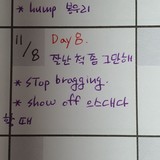 * hump 봉우리
11/8 Day 8.
잘난 척 좀 그만해
* STOP bragging.
* show off 으스대다
할 때